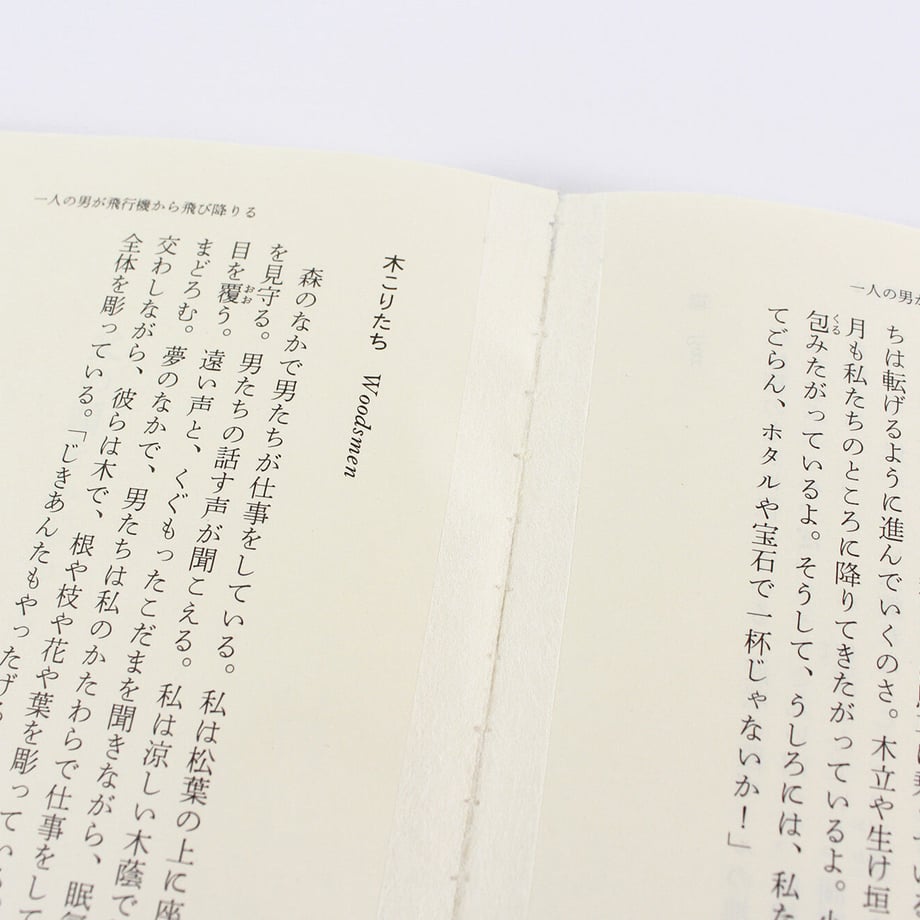 一人の男が
ちは転げるように進んでいくのさ。木立や生け垣
月も私たちのところに降りてきたがっているよ。
包みたがっているよ。そうして、うしろには、私た
てごらん、ホタルや宝石で一杯じゃないか！」
一人の男が飛行機から飛び降りる
木こりたち Woodsmen
森のなかで男たちが仕事をしている。私は松葉の上に座
を見守る。男たちの話す声が聞こえる。私は涼しい木蔭で
目を覆う。遠い声と、くぐもったこだまを聞きながら、眠
まどろむ。夢のなかで、男たちは私のかたわらで仕事をして
交わしながら、彼らは木で、根や枝や花や葉を彫っている
全体を彫っている。「じきあんたもやったげる